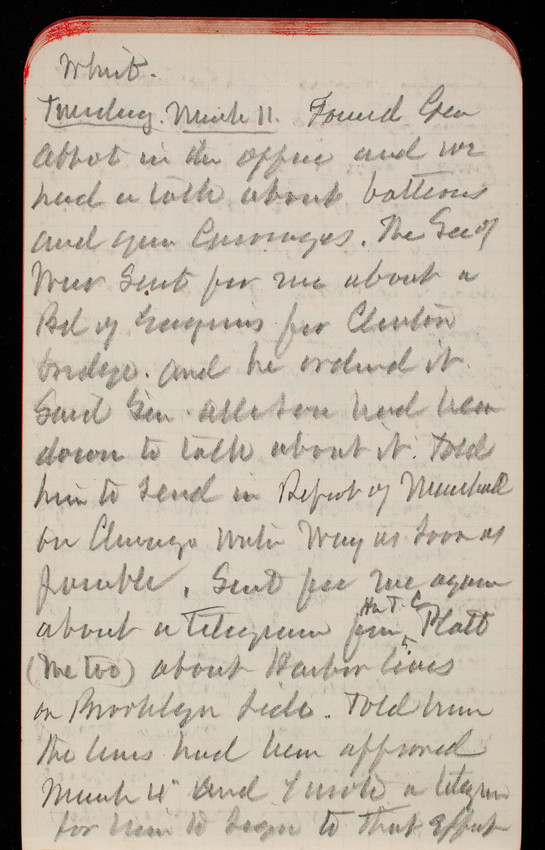 White.
Tuesday. March 11. Found Gen
Abbot in the office and we
had a talk about batteries
and gun carriages. The Sec of
War sent for me about a
Bd of Engineers for Clinton
bridge. and he ordered it.
Said Gen. Allison had been
down to talk about it. Told
him to send in Report of Marshall
on Chicago Water Way as soon as
possible. Sent for me again
about a telegram from Hon T. C. Platt
(Me too) about Harbor lines
on Brooklyn side. Told him
the lines had been approved
March 4" and I wrote a telegram
for him to sign to that effect